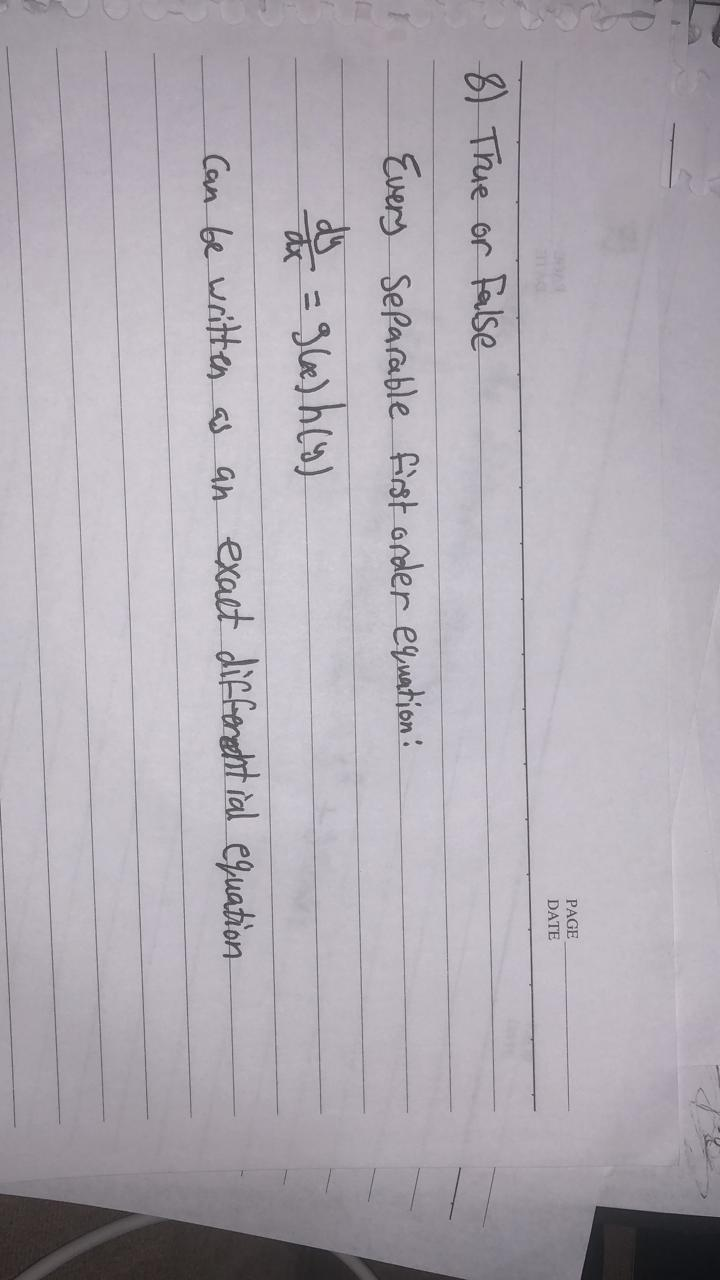 PAGE
DATE
8) True or False
Every separable first order equation:
dy/dx = g(x) h(y)
Can be written as an exact differential equation